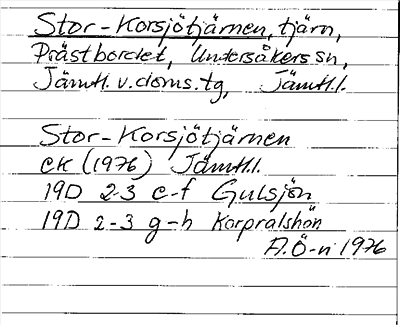 Stor-Korsjötjärnen, tjärn,
Prästbordet, Undersåkers sn,
Jämtl. v. doms. tg, Jämtl.l.
Stor-Korsjötjärnen
EK (1976) Jämtl.l.
19D 2-3 e-f Gulsjön
19D 2-3 g-h Korpralshön
A.Ö-n 1976